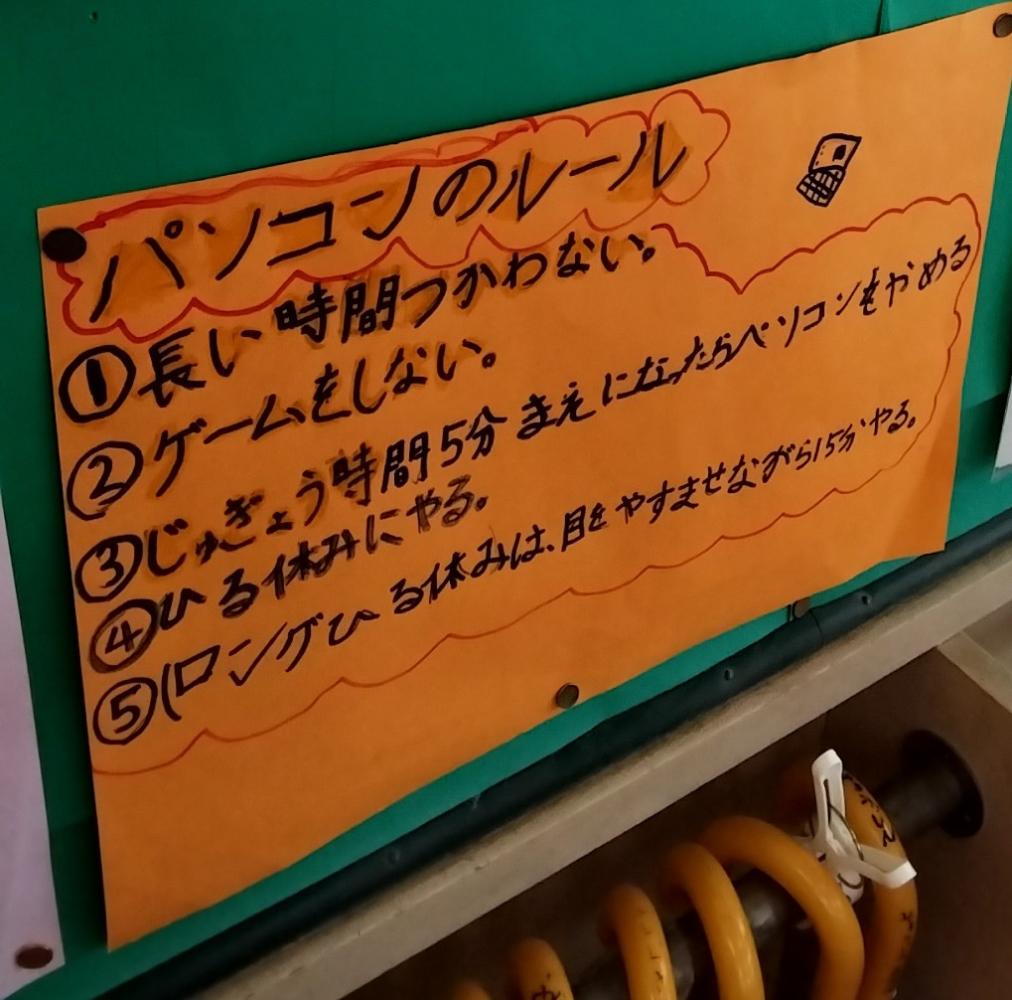 パソコンのルール
①長い時間つかわない。
②ゲームをしない。
③じゅぎょう時間5分まえになったらパソコンをやめる
④ひる休みにやる。
⑤(ロングひる休みは、目をやすませながら15分やる。